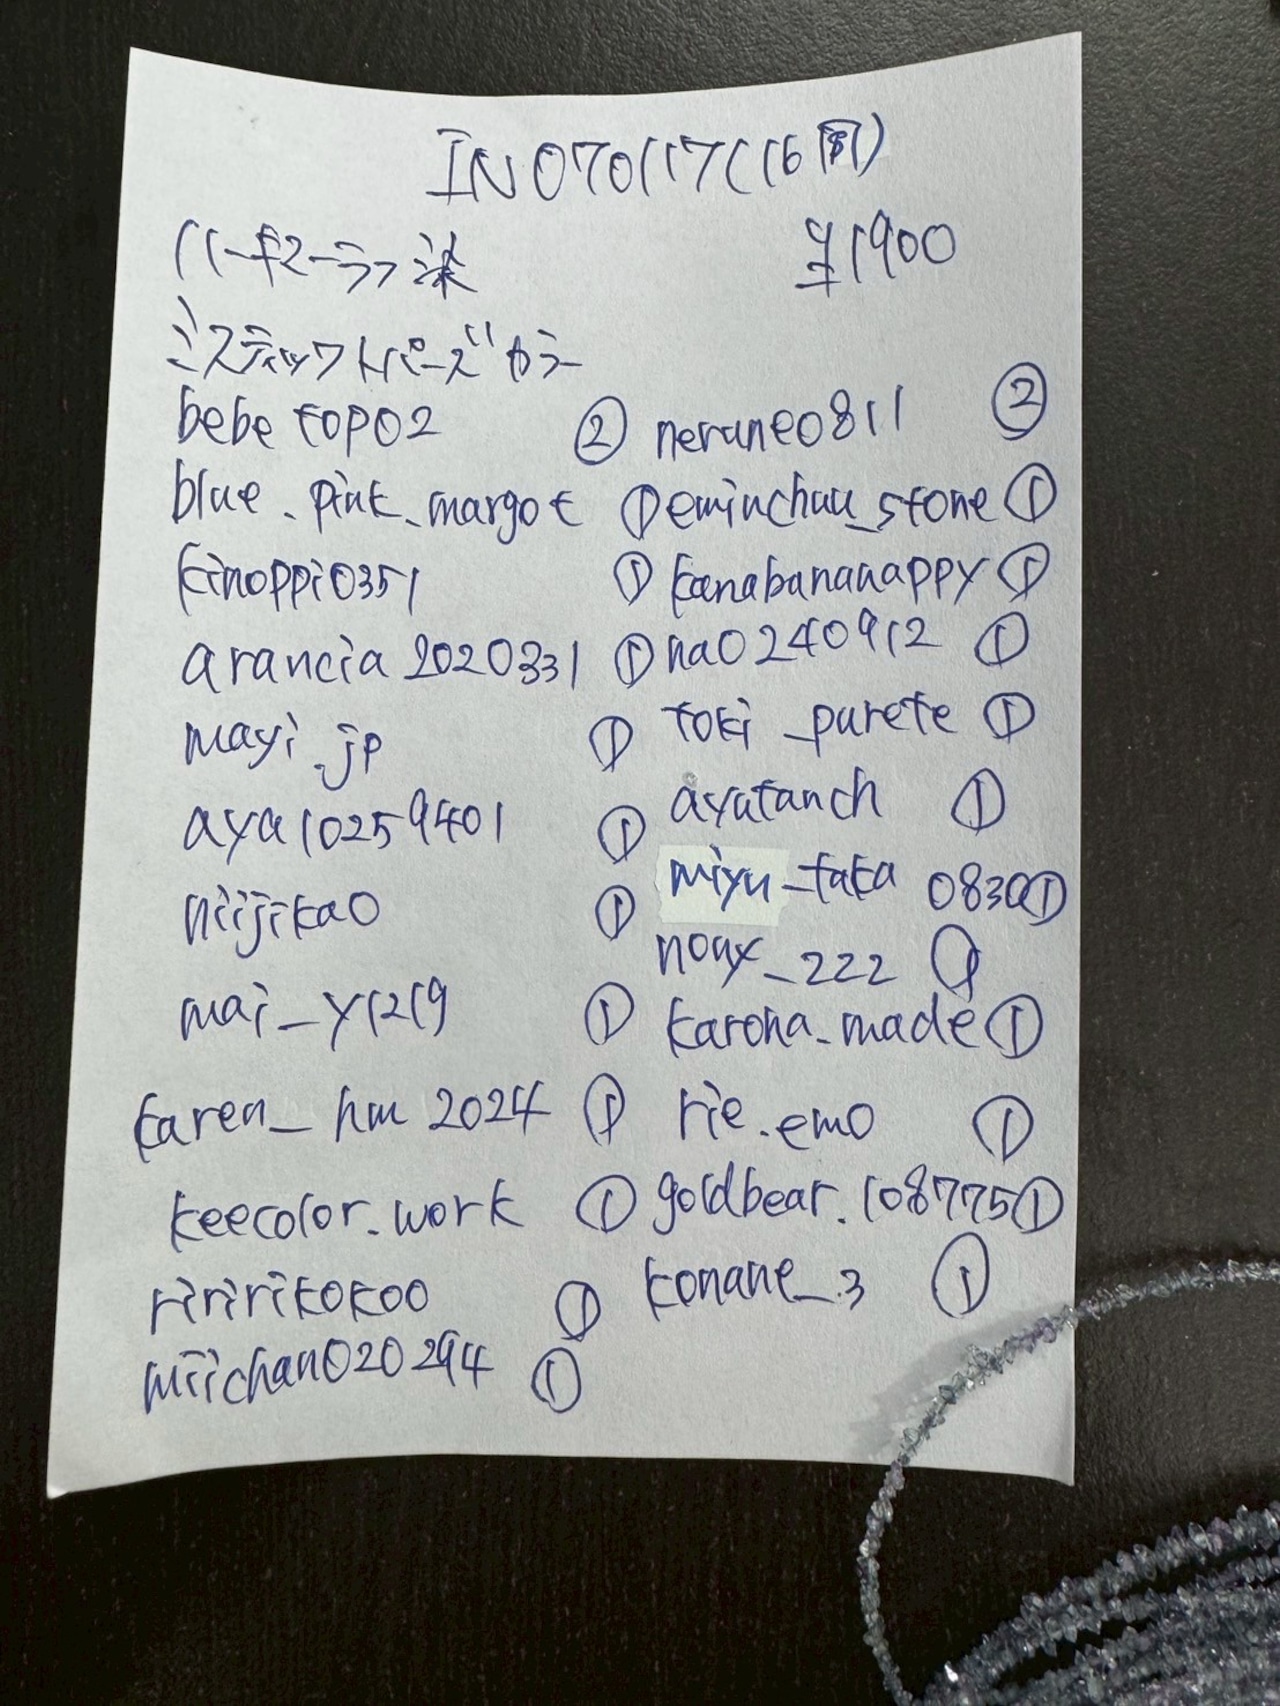 IN070117(16周)
ハーキマーラフ染 ¥1900
ミスティックトパーズカラー
bebetop02 ②
blue_pink_margot ①
kinoppi0351 ①
arancia2020331 ①
mayi.jp ①
aya10259401 ①
niijikao ①
mai_y1219 ①
karen_hm2024 ①
keecolor.work ①
riririkokoo ①
miichan020294 ①
nerune0811 ②
eminchuu_stone ①
kanabananappy ①
na0240912 ①
toki_purete ①
ayatanch ①
miyu_taka0830 ①
noax_222 ①
karona_made ①
rie.emo ①
goldbear.108775 ①
konane_3 ①